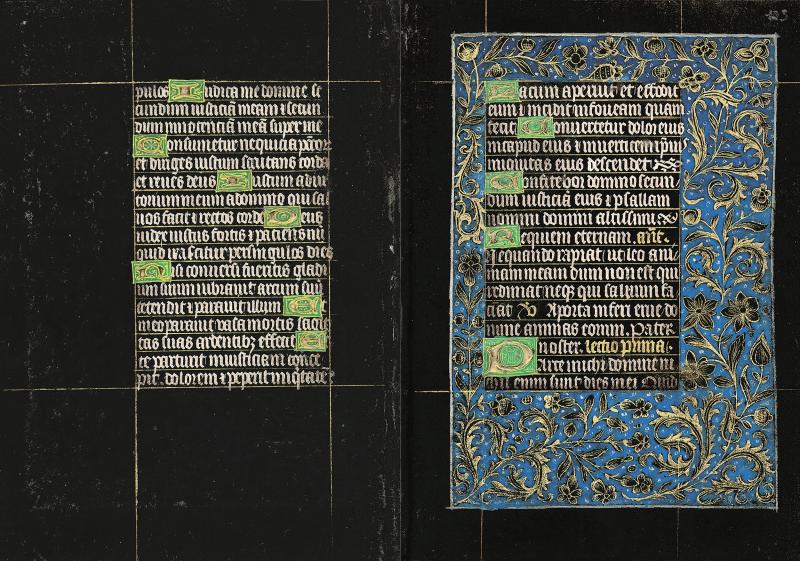 pulos Iudica me domine se
cundum iusticiā meam ⁊ secun
dum innocenciā meā super me
Consumetur nequicia pctōr
et diriges iustum scrutans corda
et renes deus Iustum adiu
torium meum a domino qui sal
uos facit ⁊ rectos corde Deus
iudex iustus fortis ⁊ paciens nū
quid irascitur per singulos dies
Nisi conuersi fueritis gladi
um suum uibrauit arcum suū
tetendit ⁊ parauit illum Et
in eo parauit vasa mortis sagit
tas suas ardentibꝫ effecit Ecce
parturit iniusticiam conce
pit dolorem ⁊ peperit iniqtatē
123
Lacum aperuit et effodit
eum ⁊ incidit in foueam quam
fecit Conuertetur dolor eius
in caput eius ⁊ in uerticem ipiū
iniquitas eius descendet
Confitebor domino secun
dum iusticiā eius ⁊ psallam
nomini domini altissimi
Requiem eternam. añt.
Nequando rapiat ut leo ani
mam meam dum non est qui
redimat neqꝫ qui saluum fa
ciat A porta inferi erue do
mine animas eorum. Pater
noster. lectio prima.
Parce michi domine ni
chil enim sunt dies mei Quid